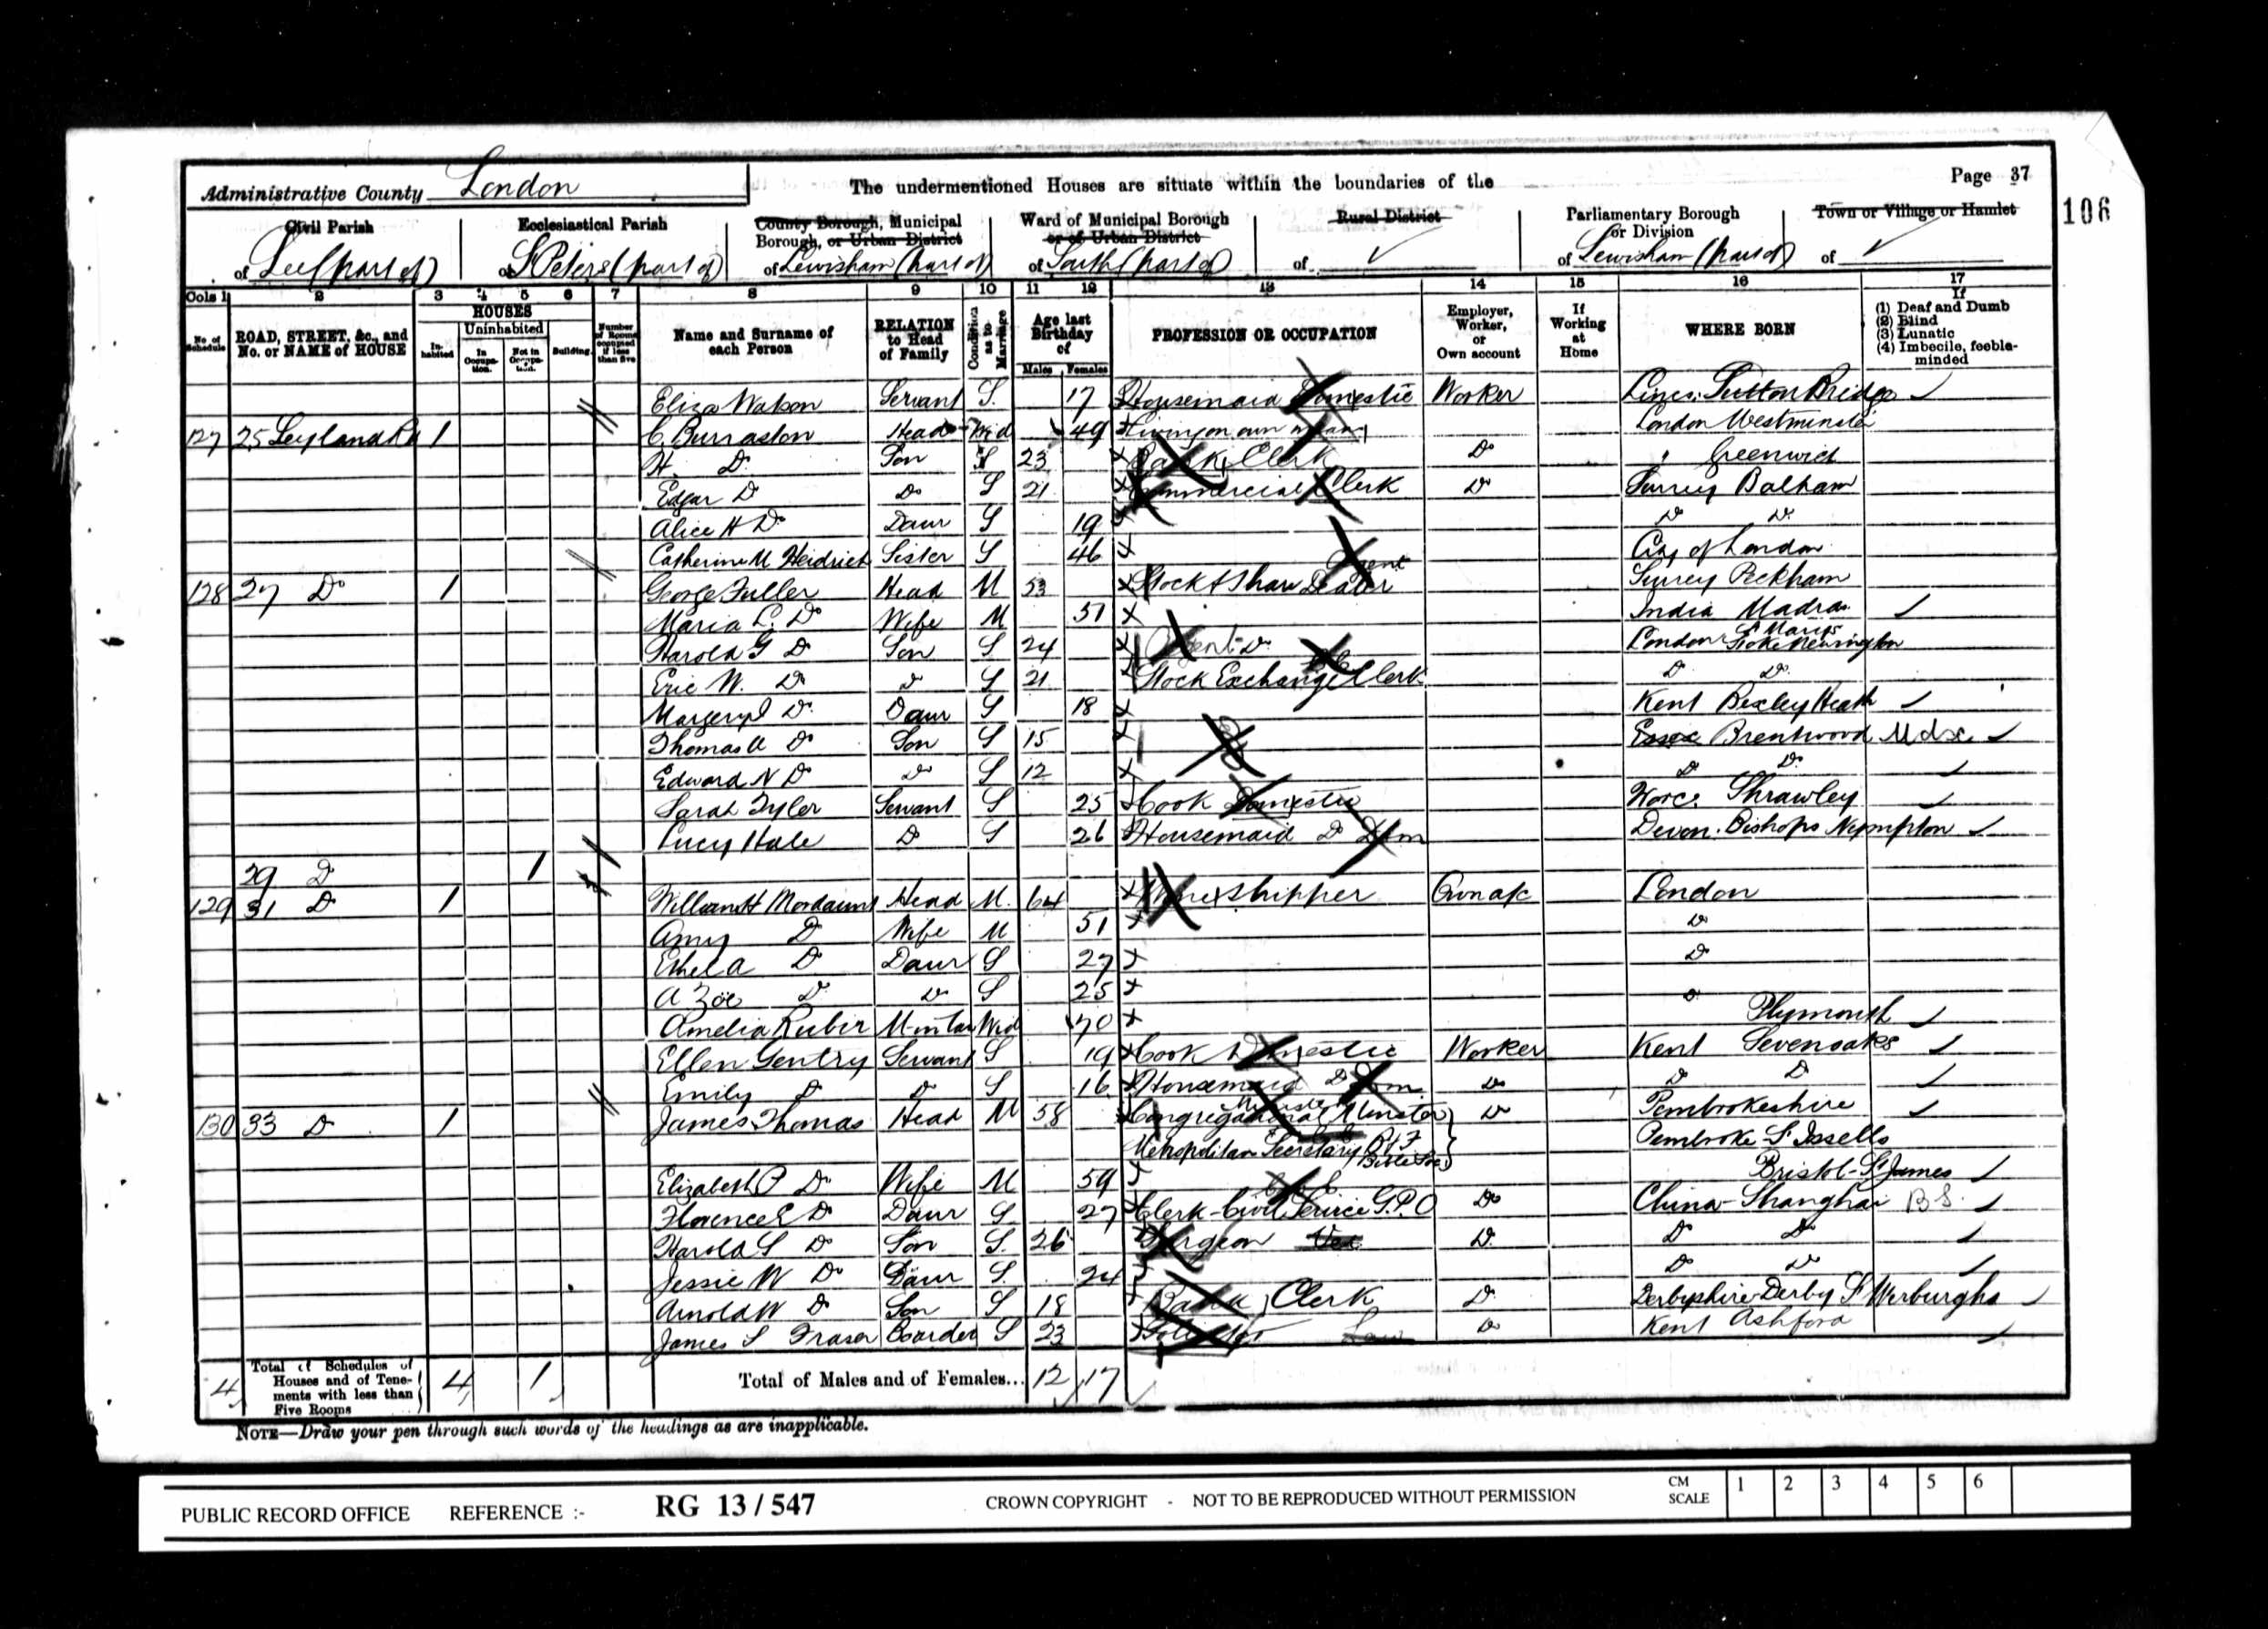 Administrative County London
The undermentioned Houses are situate within the boundaries of the
Page 37
106
Civil Parish
of Lee (part of)
Ecclesiastical Parish
of St Peters (part of)
County Borough, Municipal
Borough, or Urban District
of Lewisham (part of)
Ward of Municipal Borough
or of Urban District
of South (part of)
Rural District
of
Parliamentary Borough
or Division
of Lewisham (part of)
Town or Village or Hamlet
of
Cols 1 2 3 4 5 6 7 8 9 10 11 12 13 14 15 16 17
No. of Schedule
ROAD, STREET, &c., and No. or NAME of HOUSE
HOUSES
In-habited
Uninhabited
In Occupa-tion.
Not in Occupa-tion.
Building.
Number of Rooms occupied if less than five
Name and Surname of each Person
RELATION to Head of Family
Condition as to Marriage
Age last Birthday of
Males Females
PROFESSION OR OCCUPATION
Employer, Worker, or Own account
If Working at Home
WHERE BORN
If
(1) Deaf and Dumb
(2) Blind
(3) Lunatic
(4) Imbecile, feeble-minded
Eliza Watson Servant S. 17 Housemaid Domestic Worker Lincs. Sutton Bridge
127 25 Leyland Rd 1 C. Burraston Head Wid 49 Living on own means London Westminster
H. Do Son S 23 Bank Clerk Do " Greenwich
Edgar Do Do S 21 Commercial Clerk Do Surrey Balham
Alice H Do Daur S 19 Do Do
Catherine M Heidrich Sister S 46 City of London
Agent
128 27 Do 1 George Fuller Head M 53 Stock & Share Dealer Surrey Peckham
Maria L. Do Wife M 51 India Madras
Harold G Do Son S 24 Agent Do London St Marys Stoke Newington
Eric W. Do Do S 21 Stock Exchange Clerk Do Do
Margery Do Daur S 18 Kent Bexley Heath
Thomas A Do Son S 15 Essex Brentwood Mdsx.
Edward N Do Do S 12 Do Do
Sarah Tyler Servant S 25 Cook Domestic Worc. Shrawley
Lucy Hale Do S 26 Housemaid Do Dom Devon. Bishops Nympton
29 Do 1
129 31 Do 1 William H Mordaunt Head M. 64 Wine Shipper Own a/c London
Amy Do Wife M 51 Do
Ethel A Do Daur S 27 Do
A Zöe Do Do S 25 Do
Amelia Rubir M-in-law Wid 70 Plymouth
Ellen Gentry Servant S 19 Cook Domestic Worker Kent Sevenoaks
Emily Do Do S 16 Housemaid Do Dom Do Do Do
130 33 Do 1 James Thomas Head M 58 Congregational Minister Do Pembrokeshire
Metropolitan Secretary B & F Bible Soc Pembroke St Issells
Elizabeth P Do Wife M 59 Bristol - St James
Florence E Do Daur S 27 Clerk - Civil Service G.P.O Do China - Shanghai B S.
Harold S Do Son S. 26 Surgeon Do Do Do
Jessie W Do Daur S. 24 Do Do
Arnold W Do Son S 18 Bank Clerk Do Derbyshire Derby St Werburghs
James S Fraser Boarder S 23 Solicitor Law Do Kent Ashford
4 Total of Schedules of Houses and of Tene-ments with less than Five Rooms 4 1
Total of Males and of Females... 12 17
NOTE—Draw your pen through such words of the headings as are inapplicable.
PUBLIC RECORD OFFICE REFERENCE :- RG 13 / 547 CROWN COPYRIGHT - NOT TO BE REPRODUCED WITHOUT PERMISSION CM SCALE 1 2 3 4 5 6